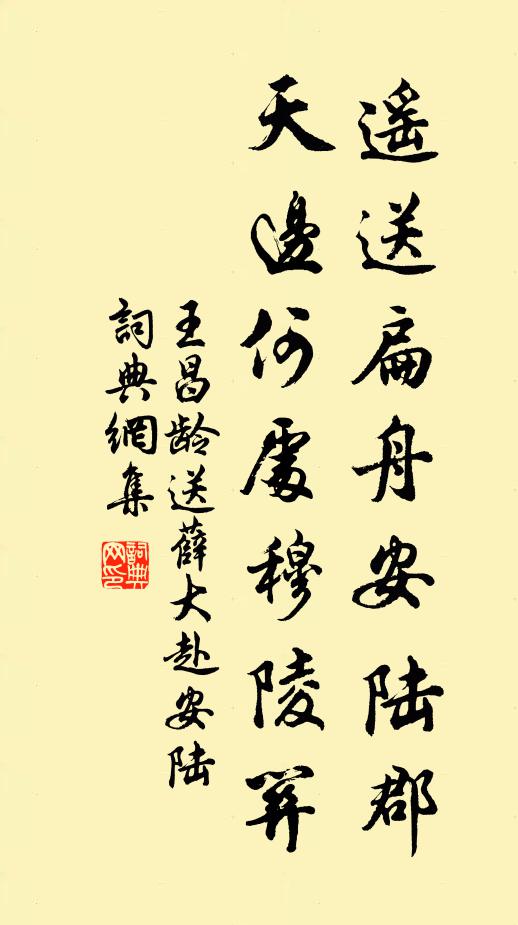 遥送扁舟安陆郡
天邊何處穆陵關
王昌齡送薛大赴安陆
詞典網集
詞典網印